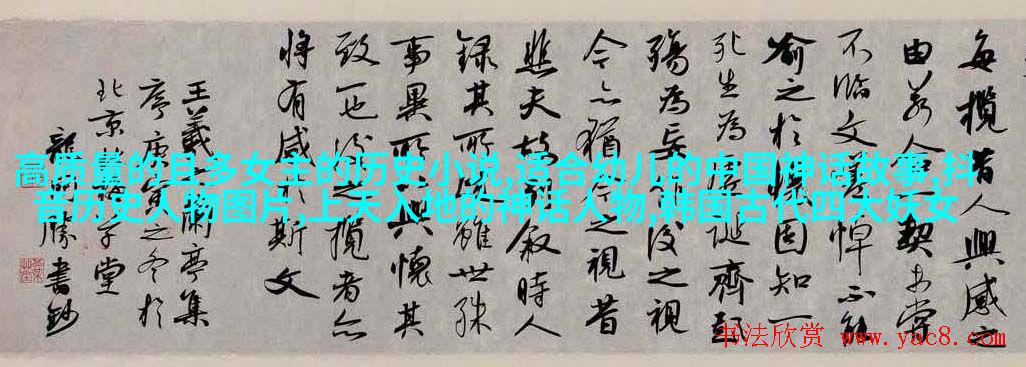 高质量的且多女主的历史小说,适合幼儿的中国神话故事,抖
音历史人物图片,上天入地的神话人物,韩国古代四大妖女
每攬昔人興感之
由若合契未嘗
不臨文嗟悼不能
喻之於懷固知一
死生為虛誕齊彭
殤為妄作後之視
今亦猶今之視昔
悲夫故列敘時人
錄其所述雖世殊
事異所以興懷其
致一也後之攬者亦
將有感於斯文
王羲之蘭亭集
序庚寅之冬於
北京堂
龍開勝書鈔
书法欣赏 www.yac8.com